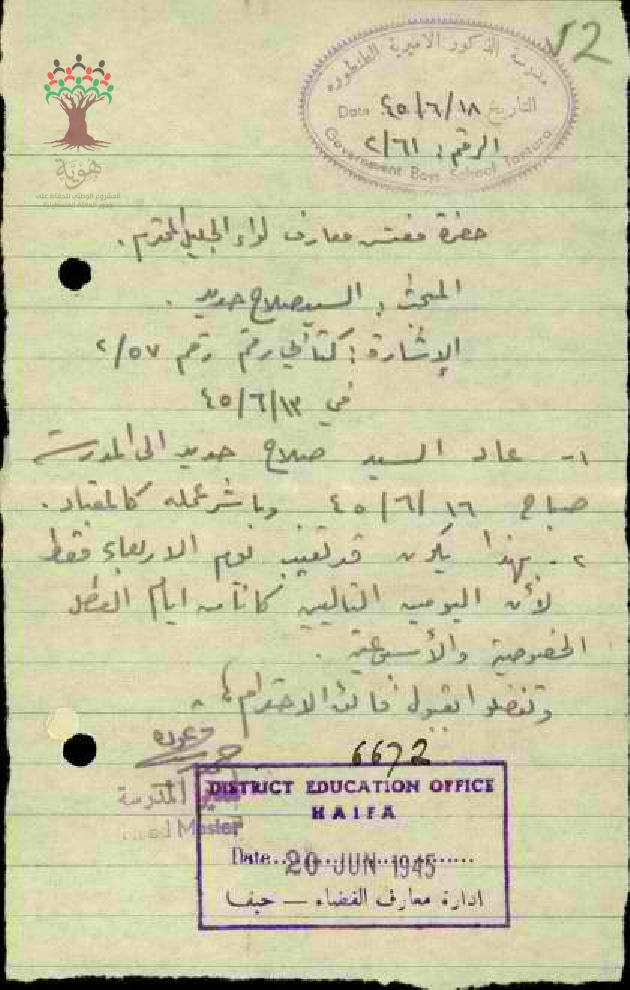 52
مدرسة الذكور الاميرية الطنطوره
Date ٤٥/٦/١٨ التاريخ
الرقم: ٢/٦١
Government Boys School Tantura
هوية
المشروع الوطني للحفاظ على
حضرة مفتش معارف لواء الجليل المحترم.
المبحث: السيد صلاح حديد.
الإشارة: كتابي رقم رقم ٢/٥٧
في ٤٥/٦/١٣
١- عاد السيد صلاح حديد الى المدرسة
صباح ٤٥/٦/١٦ وباشر عمله كالمعتاد.
٢- بهذا يكون قد تغيب يوم الاربعاء فقط
لأن اليومين التاليين كانا من ايام العطل
الخصوصية والأسبوعية.
وتفضلوا بقبول فائق الاحترام،
مدير المدرسة
Head Master
6672
DISTRICT EDUCATION OFFICE
HAIFA
Date 20 JUN 1945
ادارة معارف القضاء — حيفا